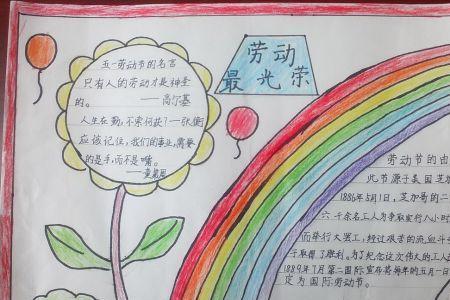 五一劳动节的名言
只有人的劳动才是神圣
的。——高尔基
人生在勤,不索何获?一张衡
应该记住,我们的事业,需要
的是手,而不是嘴。
——童第周
劳动
最光荣
劳动节的由
此节源于美国芝加
1886年5月1日,芝加哥的二
六千余名工人为争取实行八小时
而举行大罢工,经过艰苦的流血斗
于取得了胜利。为了纪念这次伟大的工人
1889年7月第二国际宣布将每年的五月一日
定为国际劳动节。